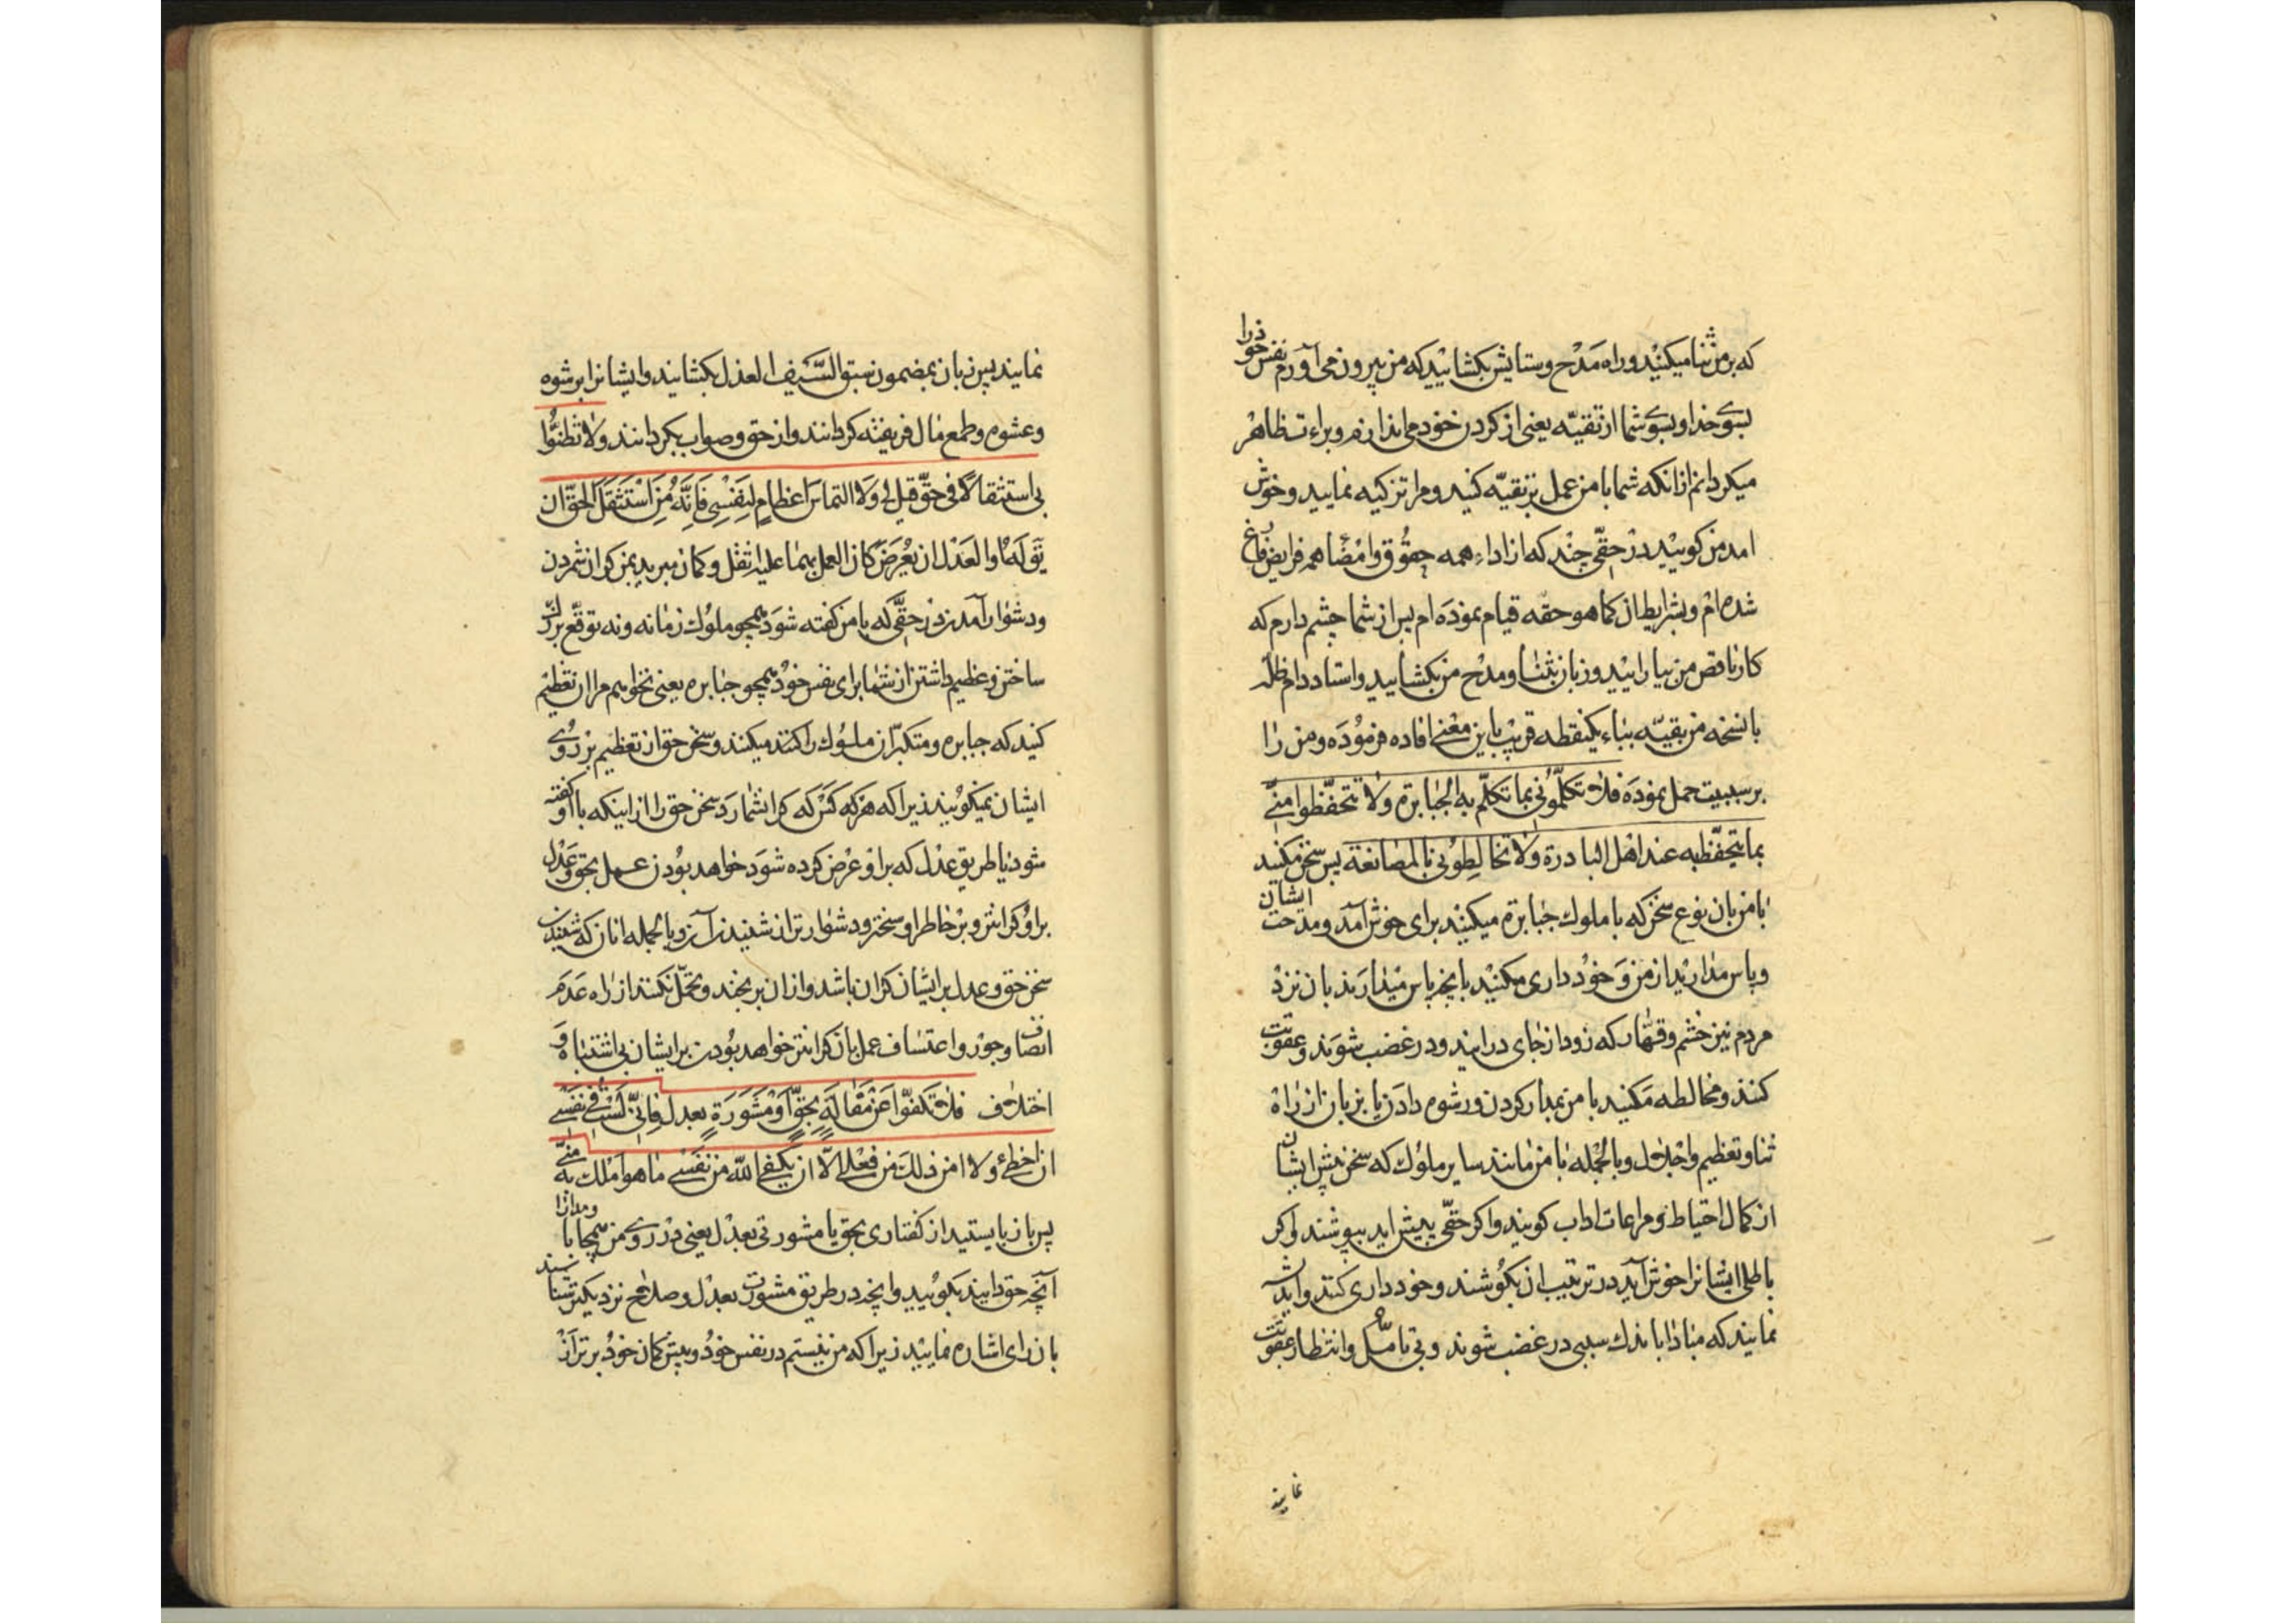 که بر من ثنا میکنید و راه مَدْح و ستایش بکشائید که من بیرون می آورم نفس خود را
بسوی خدا و بسوی شما از تقیّه یعنی از کردن خود می اندازم و براءت ظاهر
میکردانم از انکه شما با من عمل بر تقیّه کنید و مرا تزکیه نمایید و خوش
امد من کوئید در حقّی چند که از اداء همه حقُوُق و امْضاء همه فرایض فارغ
شده ام و بشرایط ان کما هو حقه قیام نموده ام پس از شما چشم دارم که
کار ناقص من بیارایید و زبان بثنا و مدْح من بکشایید و استاد دام ظله
با نسخه من بقیّه بباء یکنقطه قریب باین معْنی افاده فرمُوُدَه و من را
بر سببیت حمل نمودَه فلا تکلّموُنی بما تکلّم به الجبابرة ولا تتحفّظوا منّی
بما یتحفّظ به عند اهل البادرة ولا تخالطِوُنی بالمصانعة پس سخن مکنید
با من بان نوع سخن که با ملوك جبابرة میکنند برای خوش آمد و مدحت ایشان
و پاس مدارید از من وَ خوُد داری مکنید بانچه پاس میدارند بان نزد
مردم تیز خشم و قهّار که زود از جای در ایند و در غضب شوند و عقوبت
کنند و مخالطه مَکنید با من بمدارا کردن و رشوه دادن یا بزبان از راه
ثنا و تعظیم و اجْلال و بالجُمْله با من مانند سایر ملوُك که سخن پیش ایشان
از کمال احتیاط و مراعات اداب کویند و اکر حقّی پیش اید بپوشند و اکر
باطلی ایشانرا خوش آید در ترتیب ان بکوُشند و خود داری کنند و اندیشه
نمایند که مبادا باندك سببی در غضب شوند و بی تامّل و انتظار عقوبت
نمایند
نمایند پس زبان بمضمون سبق السَّیف العذل بکشایند و ایشانرا برشوه
و عشوه و طمع مال فریفته کردانند و از حق و صواب بکردانند ولا تظنّوُا
بی استثقالًا فی حقّ قیل لی وَلا التماسَ اعظامٍ لِنَفْسِی فَاِنَّهُ مَنِ اسْتَثقَلَ الحقّ ان
یُقٰالَ لَهُ او العَدْل ان یُعْرَضَ کان العمل بهما علیه اثقل و کمان مبرید بمن کران شمردن
و دشوار آمدن در حقّی که با من کفته شَوَد همچو ملوُك زمانه و نه توقّع بزرك
ساختن و عظیم داشتن از شما برای نفس خوُد همچو جبابره یعنی نخواهم مرا ان تعْظیم
کنید که جبابره و متکبّران ملوُك را کنند میکنند و سخن حق از تعظیم بر رُوی
ایشان نمیکوُیند زیرا که هر که کَسْ که کران شمارَد سخن حق را از اینکه با او کفته
شود یا طریق عدْل که بر او عرْض کرده شَوَد خواهد بوُدن عمل بحق وَ عَدْل
بر اوُ کرانتر و برْ خاطر او سختر و دشوارتر از شنیدن آن و بالجمله انان که شنیدن
سخن حق و عدل بر ایشان کران باشد و از ان برنجند و تحمّل نکنند از راه عَدم
انصاف و جوْر و اعتساف عمل بان کرانتر خواهد بوُدن بر ایشان بی اشتباه و
اختلاف فلا تکفّوا عَنْ مَقٰالَةٍ بِحقّ اَوْ مَشوَرَةٍ بعدل فانّی لَسْتُ فی نَفسی
ان اخطِئ ولا امن ذلك من فعْلی الّا ان یکفی الله من نَفسی ما هو امْلك به منّی
پس باز نایستید از کفتاری بحق یا مشورتی بعدْل یعنی در روی من بیمحابا و مدارا
آنچه حق دانید بکوئید و انچه در طریق مشورت بعدْل و صلاح نزدیکتر شناسند
بان رای اشاره نمایید زیرا که من نیستم در نفس خوُد و پیش کمان خود برتر از